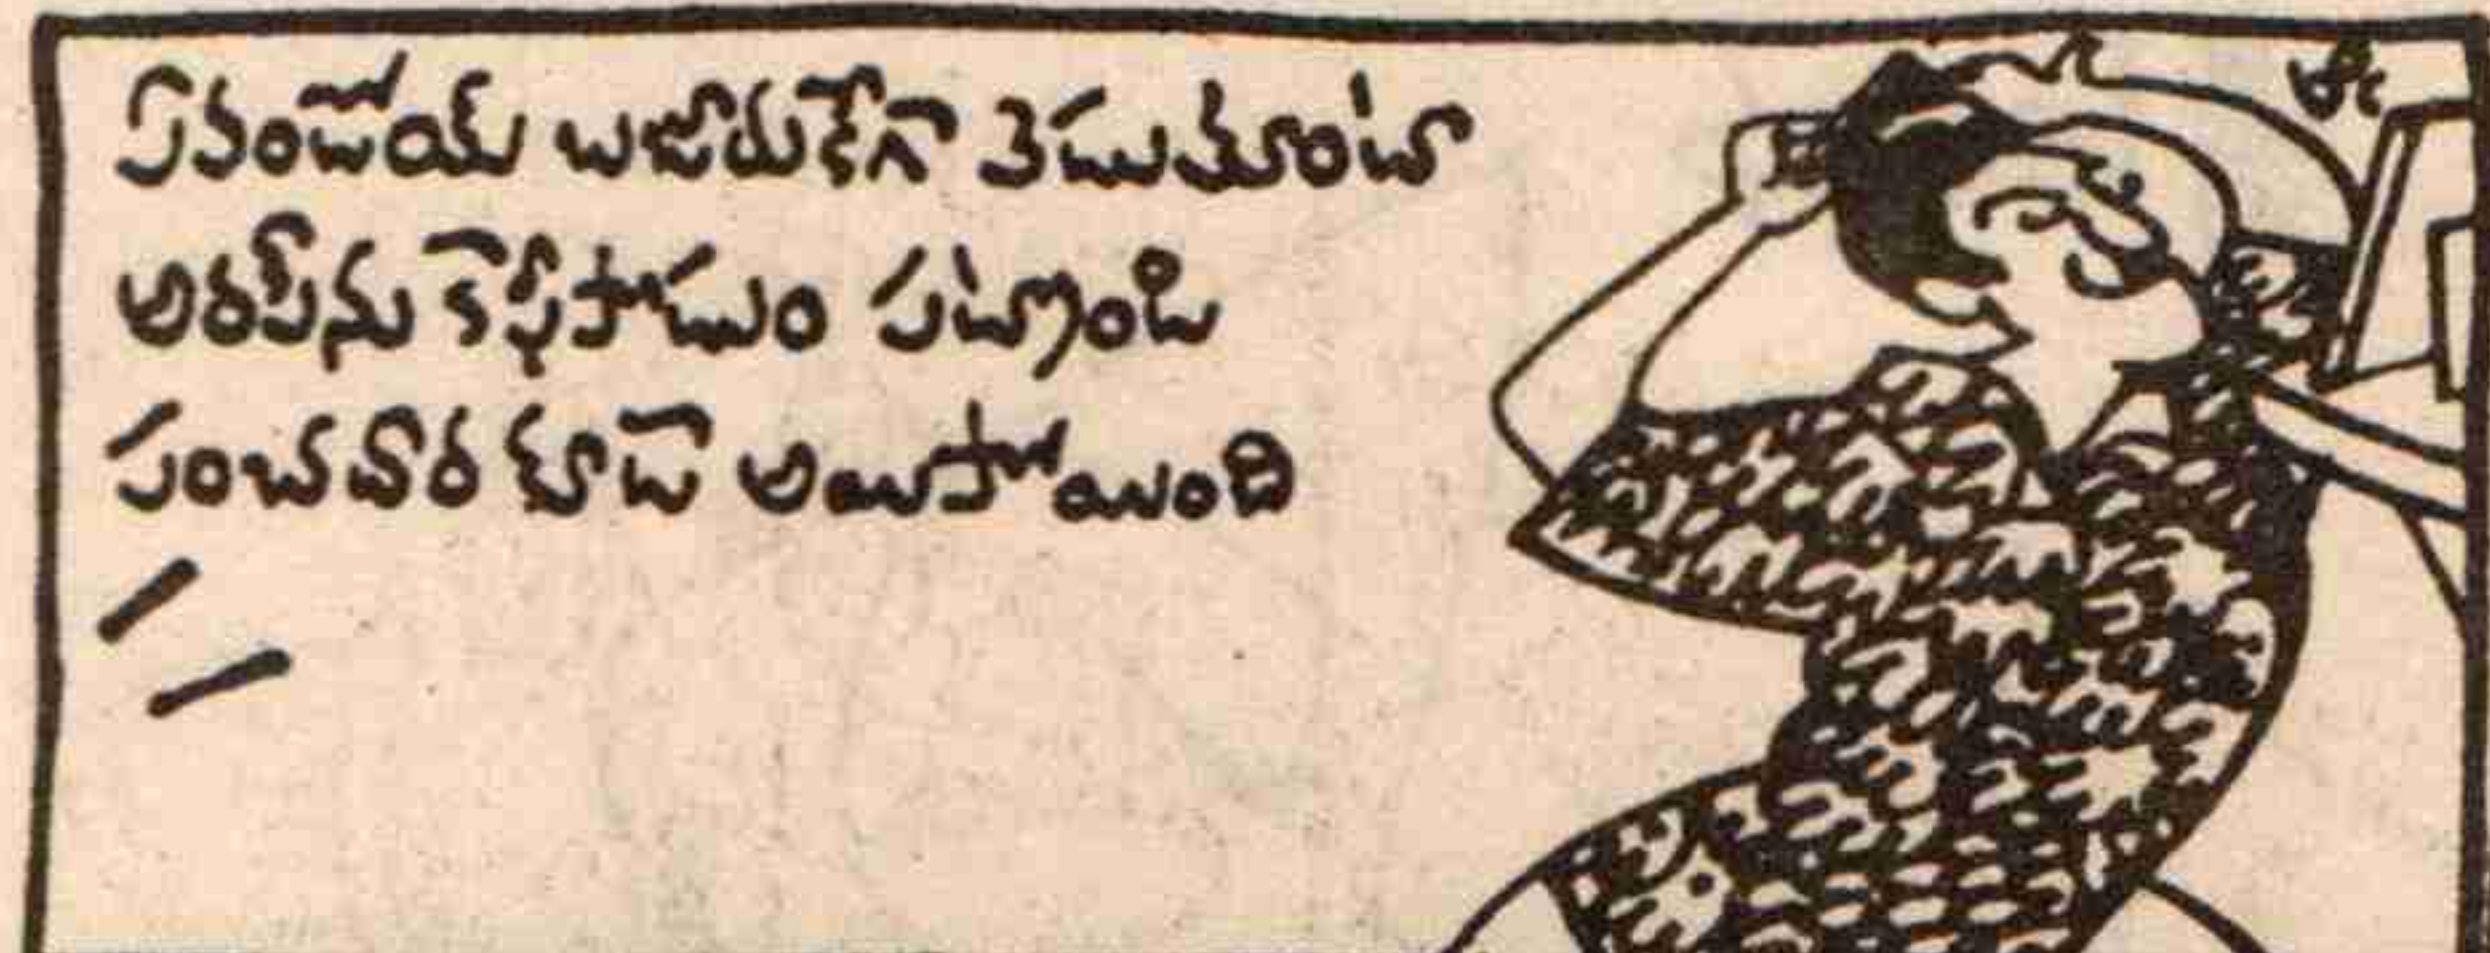 ఏవండోయ్ బజారుకేగా వెడుతూంటా
అరపీను కాఫీపొడుం పట్రాండి
పంచదార కూడా అయిపోయింది